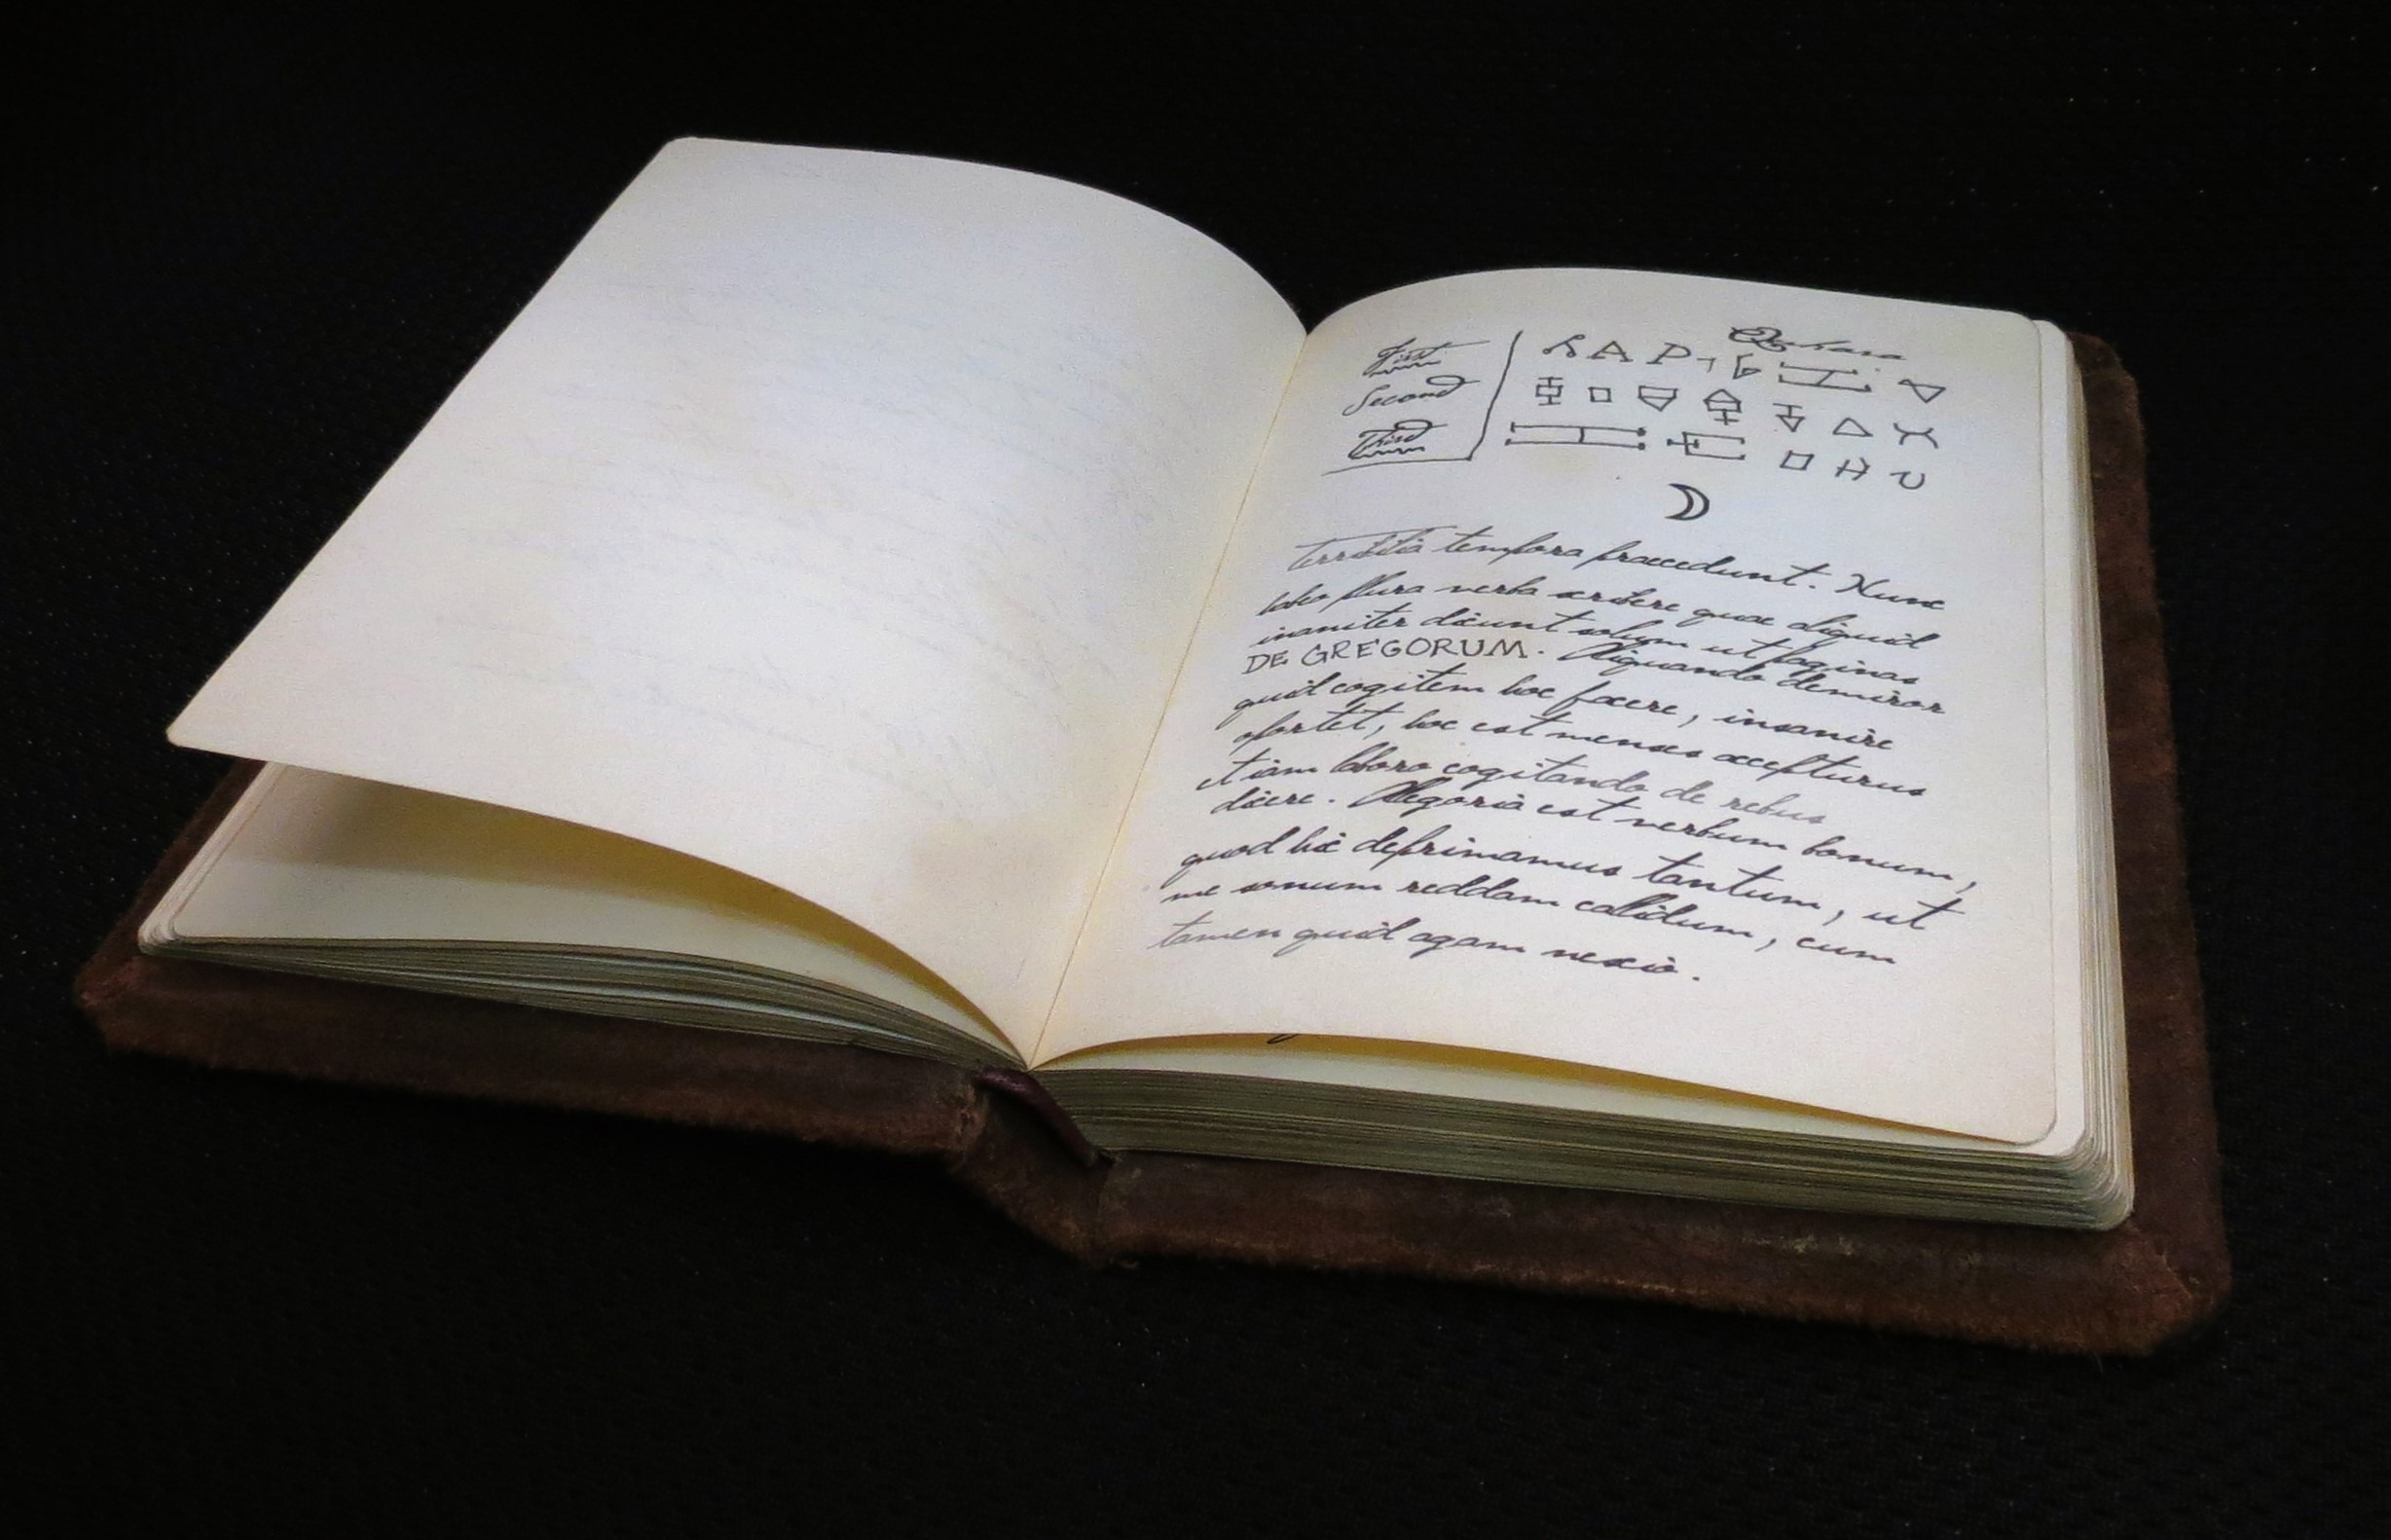 First
Second
Third
territia tempora praecedunt. Nunc
labeo plura verba scribere quae aliquid
inaniter dicunt solum ut paginas
DE GREGORUM. Aliquando demiror
quid cogitem hoc facere, insanire
oportet, hoc est menses accepturus
et iam laboro cogitando de rebus
dicere. Alegoria est verbum bonum,
quod hic deprimamus tantum, ut
me sonum reddam callidum, cum
tamen quid agam nescio.